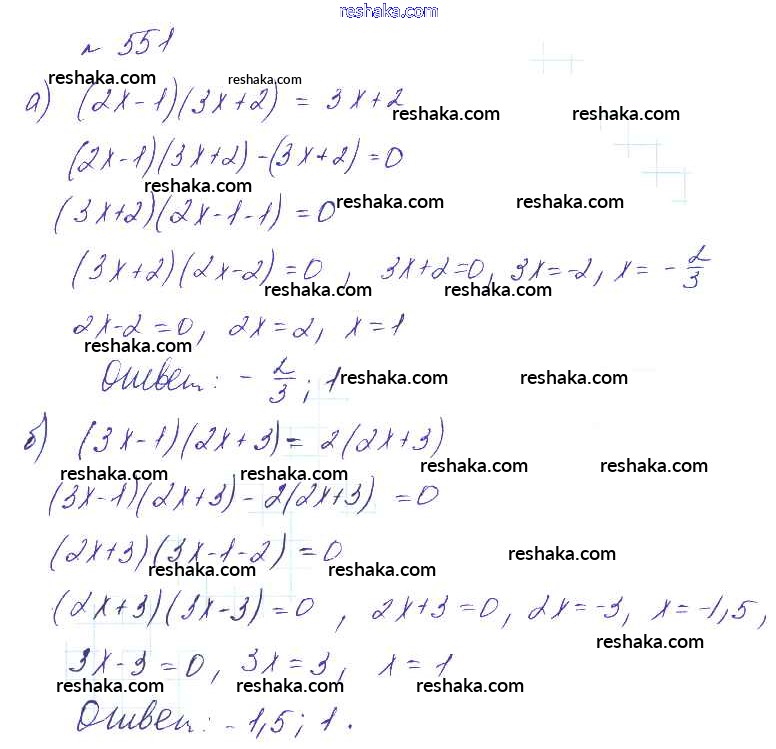 reshaka.com
№ 551
reshaka.com reshaka.com
а) (2x-1)(3x+2) = 3x+2
reshaka.com reshaka.com
(2x-1)(3x+2)-(3x+2)=0
reshaka.com
(3x+2)(2x-1-1)=0 reshaka.com reshaka.com
(3x+2)(2x-2)=0, 3x+2=0, 3x=-2, x=-2/3
reshaka.com reshaka.com
2x-2=0, 2x=2, x=1
reshaka.com
Ответ: -2/3; 1 reshaka.com reshaka.com
б) (3x-1)(2x+3)=2(2x+3)
reshaka.com reshaka.com reshaka.com reshaka.com
(3x-1)(2x+3)-2(2x+3)=0
(2x+3)(3x-1-2)=0 reshaka.com
reshaka.com reshaka.com
(2x+3)(3x-3)=0, 2x+3=0, 2x=-3, x=-1,5,
reshaka.com
3x-3=0, 3x=3, x=1
reshaka.com reshaka.com reshaka.com
Ответ: -1,5; 1.